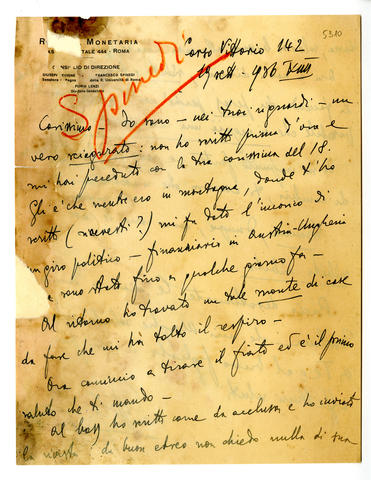 5310
MONETARIA
444 - ROMA
SIGLIO DI DIREZIONE
FRANCESCO SPINEDI
della R. Università di Roma
FURIO LENZI
Direttore-fondatore
Spinedi
Corso Vittorio 142
19 sett. 936 XIII
Carissimo - Io sono - nei tuoi riguardi - un
vero sciagurato: non ho scritto prima d'ora e
mi hai preceduto con la tua carissima del 18.
Gli è che mentre ero in montagna, donde t'ho
scritto (ricevesti?) mi fu dato l'incarico di
un giro politico - finanziario in Austria-Ungheria
e sono stato fino a qualche giorno fa -
Al ritorno ho trovato un tale monte di cose
da fare che mi ha tolto il respiro -
Ora comincio a tirare il fiato ed è il primo
saluto che ti mando -
Al ho scritto come da acclusa e ho inviato
la rivista di buon ebreo non chiedo nulla di sua